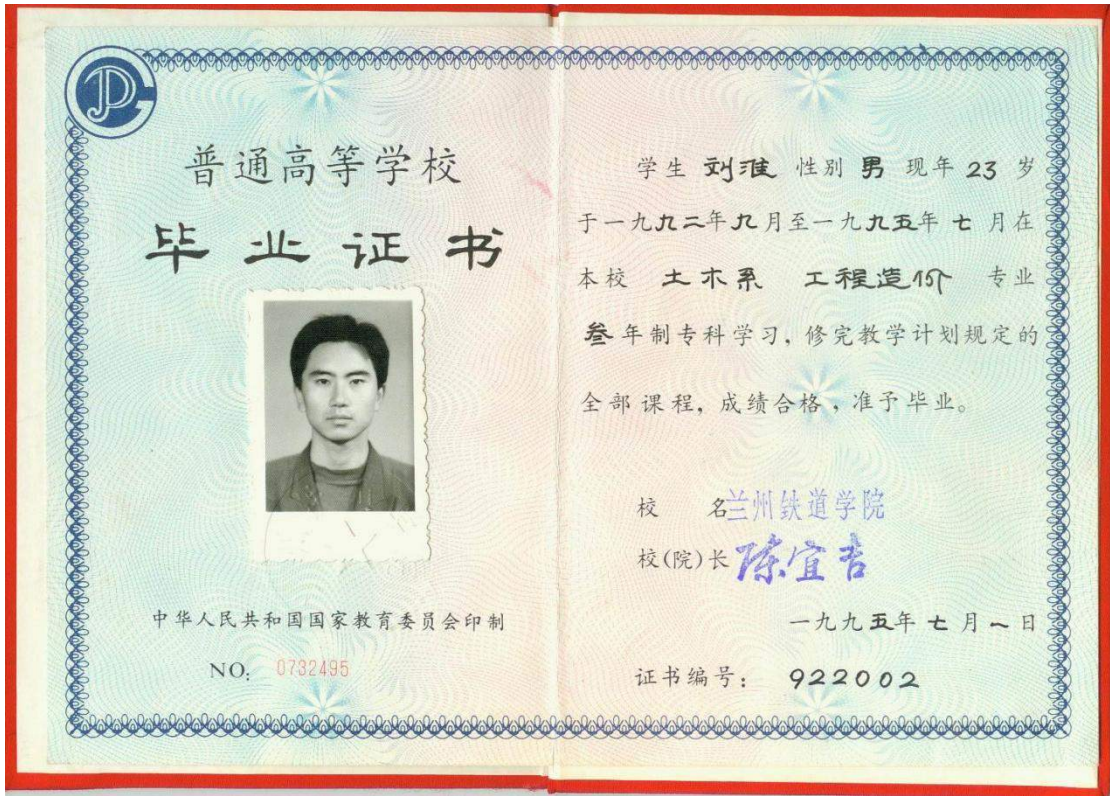 普通高等学校
毕业证书
中华人民共和国国家教育委员会印制
NO: 0732495
学生 刘淮 性别 男 现年 23 岁
于一九九二年九月至一九九五年 七 月在
本校 土木系 工程造价 专业
叁年制专科学习, 修完教学计划规定的
全部课程, 成绩合格, 准予毕业。
校 名兰州铁道学院
校(院)长 陈宜吉
一九九五年 七 月 一 日
证书编号: 922002